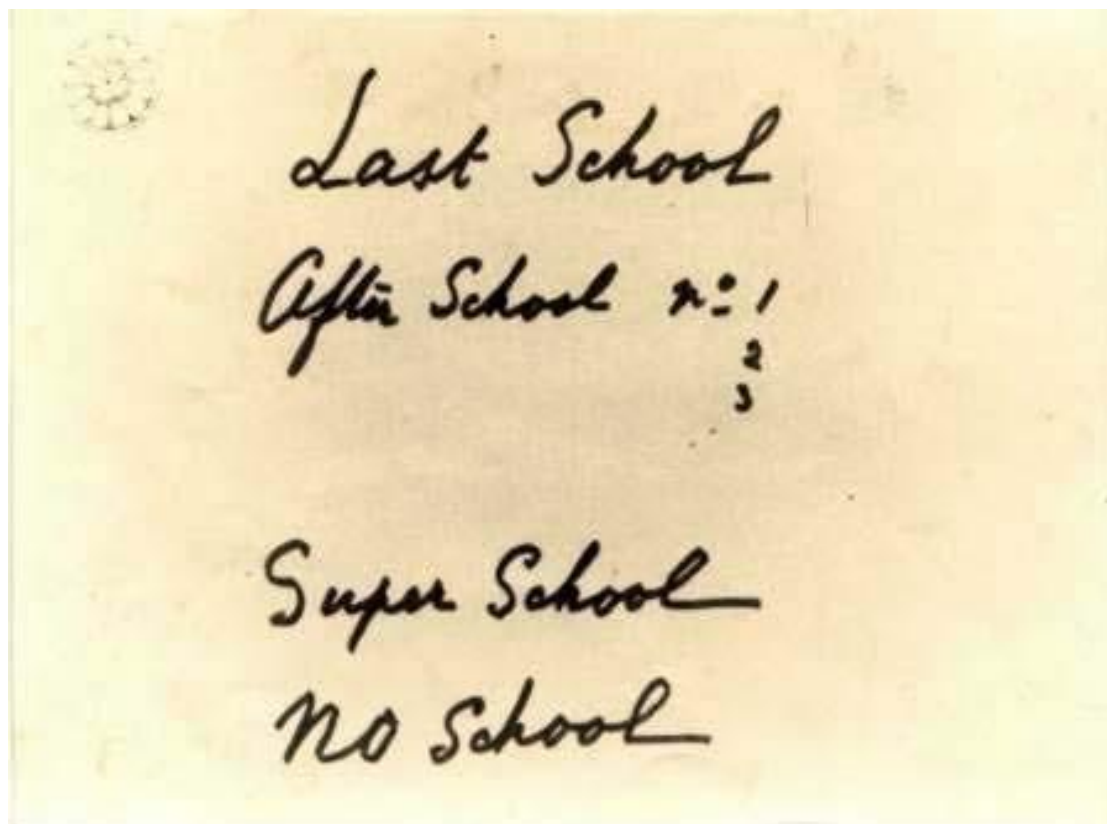 Last School
After School nº 1
2
3
Super School
No School